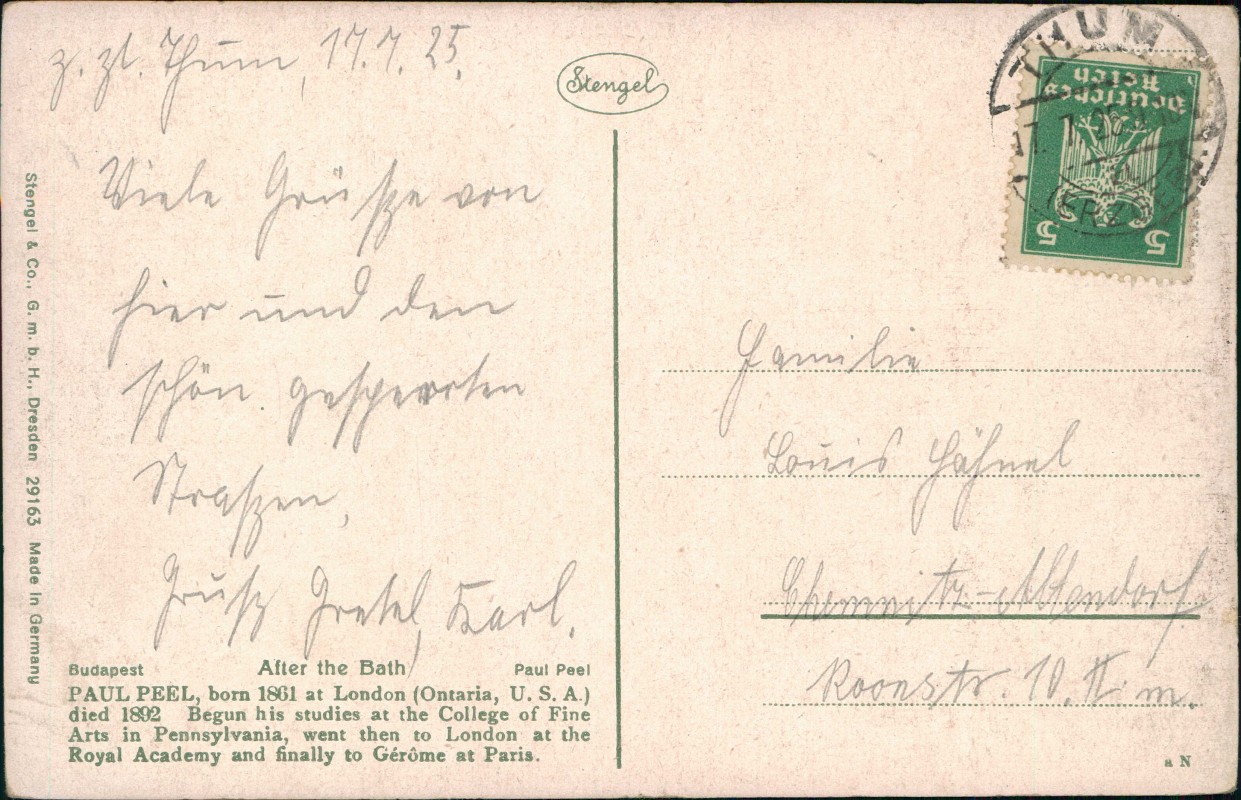 z. Zt. Thum, 17.7.25.
Stengel
Viele Grüsze von
hier und den
schön gesperrten
Straszen,
Grusz Gretel, Karl.
Stengel & Co., G. m. b. H., Dresden 29163 Made in Germany
Budapest After the Bath Paul Peel
PAUL PEEL, born 1861 at London (Ontaria, U. S. A.)
died 1892 Begun his studies at the College of Fine
Arts in Pennsylvania, went then to London at the
Royal Academy and finally to Gérôme at Paris.
THUM
17. 7. 25
(ERZ
Deutsches
Reich
5 5
Familie
Louis Hähnel
Chemnitz-Altendorf.
Roonstr. 10. II. m.
a N